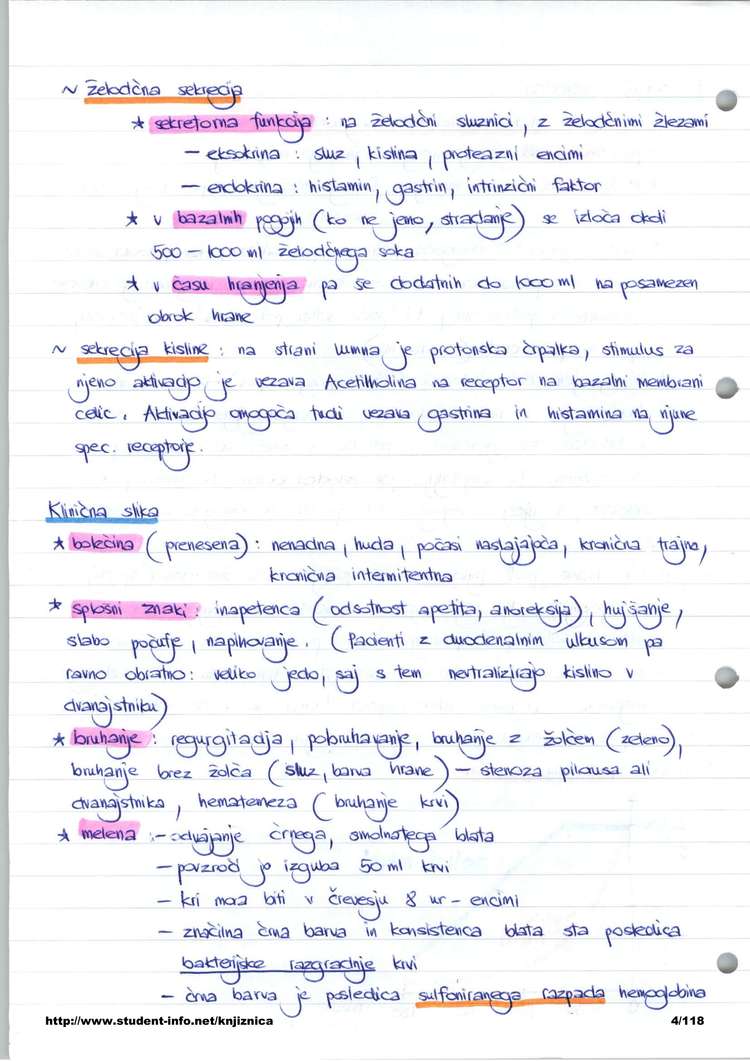 ~ Želodčna sekrecija
* sekretorna funkcija : na želodčni sluznici, z želodčnimi žlezami
- eksokrina : sluz, kislina, proteazni encimi
- endokrina : histamin, gastrin, intrinzični faktor
* v bazalnih pogojih (ko ne jemo, stradanje) se izloča okoli
500 – 1000 ml želodčnega soka
* v času hranjenja pa se dodatnih do 1000 ml na posamezen
obrok hrane
~ sekrecija kisline : na strani lumna je protonska črpalka, stimulus za
njeno aktivacijo je vezava Acetilholina na receptor na bazalni membrani
celic. Aktivacijo omogoča tudi vezava gastrina in histamina na njune
spec. receptorje.
Klinična slika
* bolečina (prenesena) : nenadna, huda, počasi nastajajoča, kronična trajna,
kronična intermitentna
* splošni znaki : inapetenca (odsotnost apetita, anoreksija), hujšanje,
slabo počutje, napihovanje. (Pacienti z duodenalnim ulkusom pa
ravno obratno: veliko jedo, saj s tem nevtralizirajo kislino v
dvanajstniku)
* bruhanje : regurgitacija, pobruhavanje, bruhanje z žolčem (zeleno),
bruhanje brez žolča (sluz, barva hrane) – stenoza pilorusa ali
dvanajstnika, hematemeza (bruhanje krvi)
* melena :- odvajanje črnega, smolnatega blata
- povzroči jo izguba 50 ml krvi
- kri mora biti v črevesju 8 ur - encimi
- značilna črna barva in konsistenca blata sta posledica
bakterijske razgradnje krvi
- črna barva je posledica sulfoniranega razpada hemoglobina
http://www.student-info.net/knjiznica 4/118